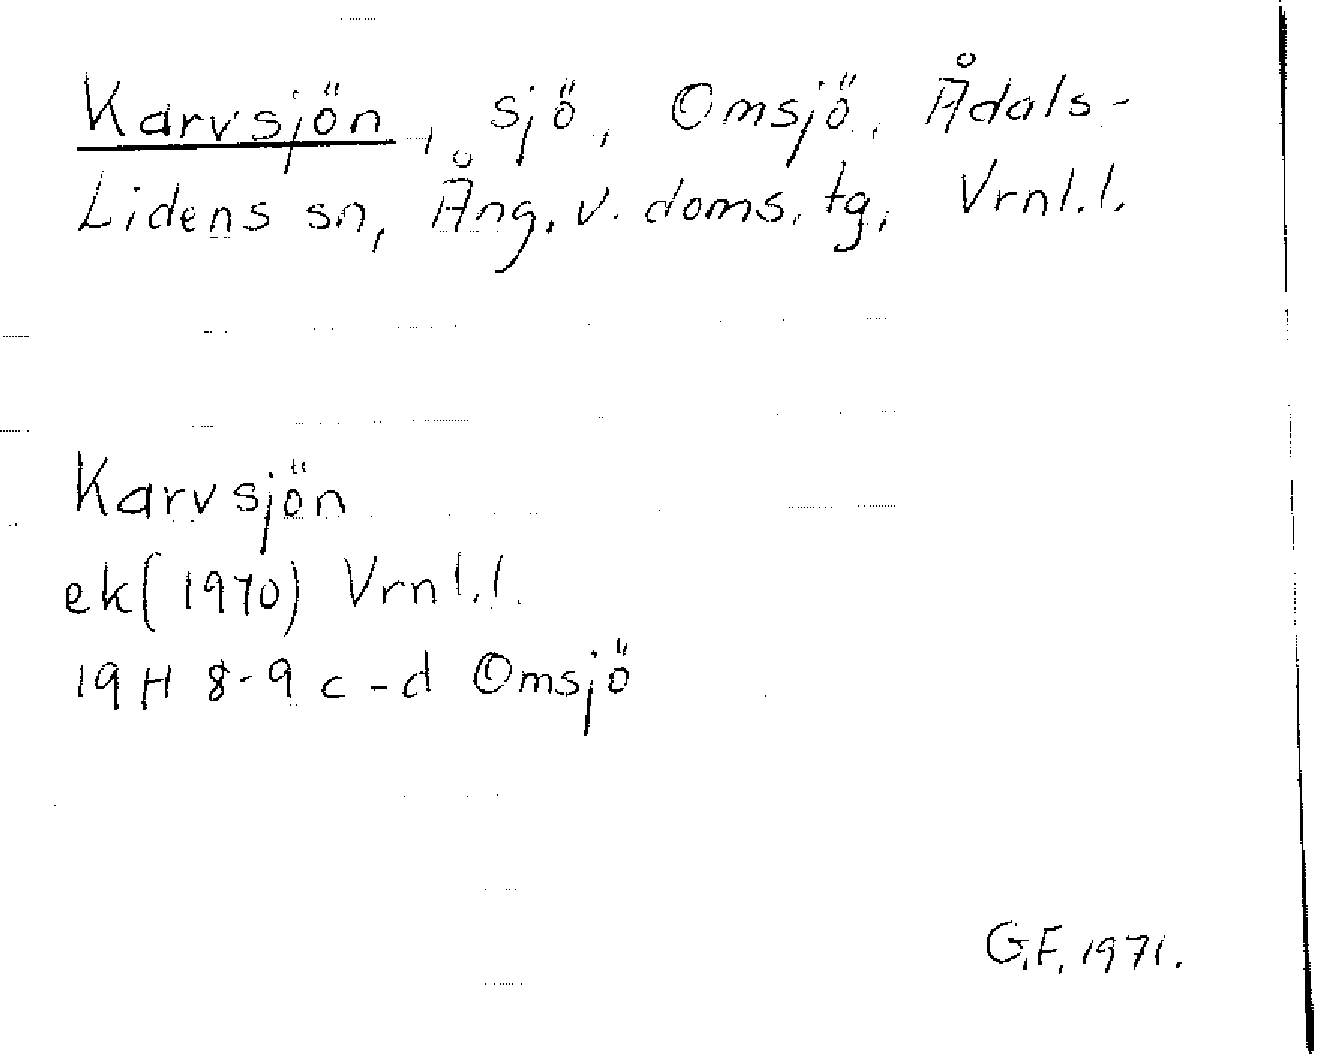 Karvsjön, sjö, Omsjö, Ådals-
Lidens sn, Ång. v. doms. tg, Vrnl.l.
Karvsjön
ek(1970) Vrnl.l.
19H 8-9 c-d Omsjö
G.F. 1971.